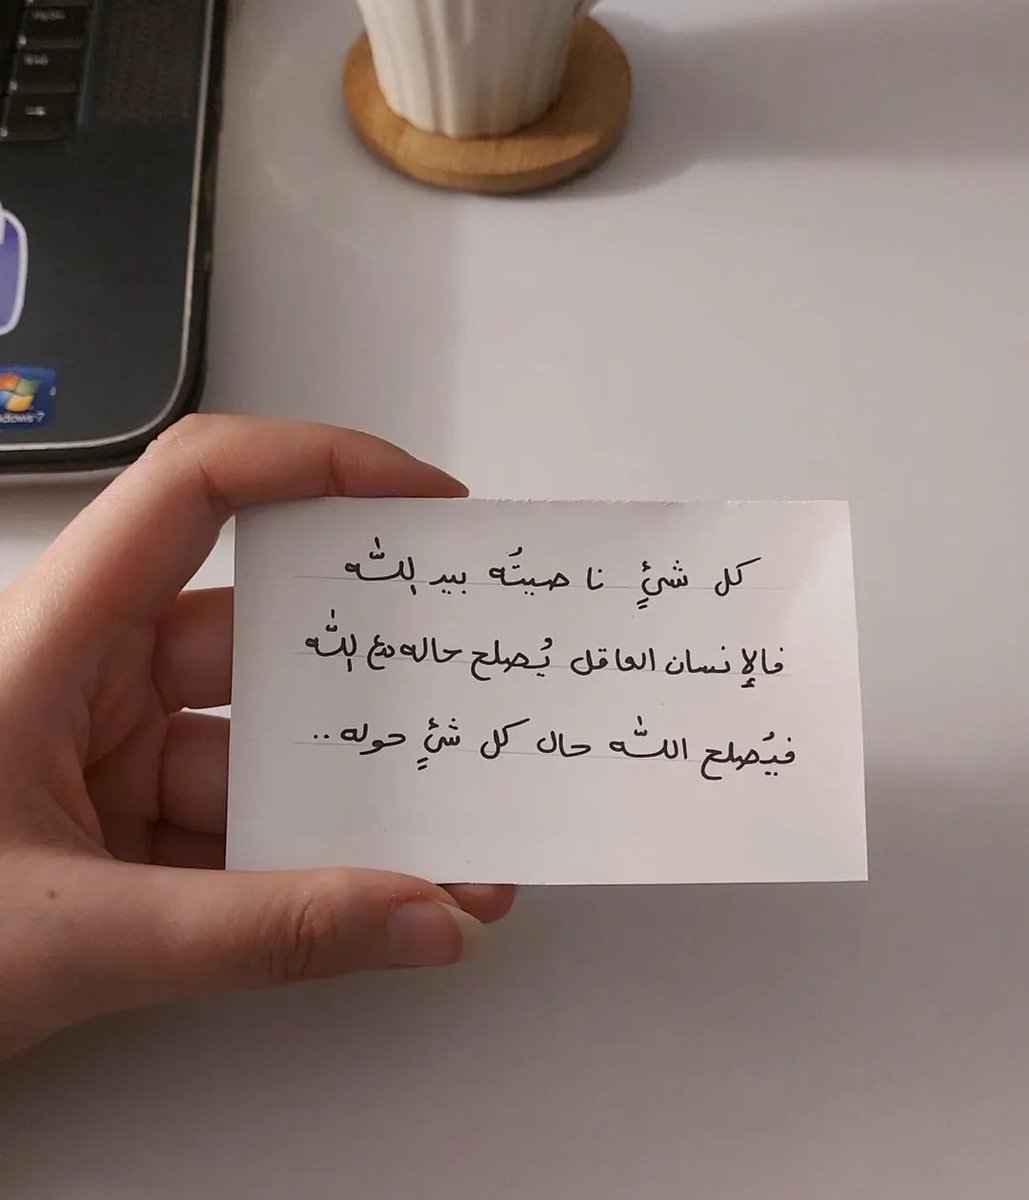 كل شئٍ ناصيتُه بيد الله
فالإنسان العاقل يُصلح حاله مع الله
فيُصلح الله حال كل شئٍ حوله..